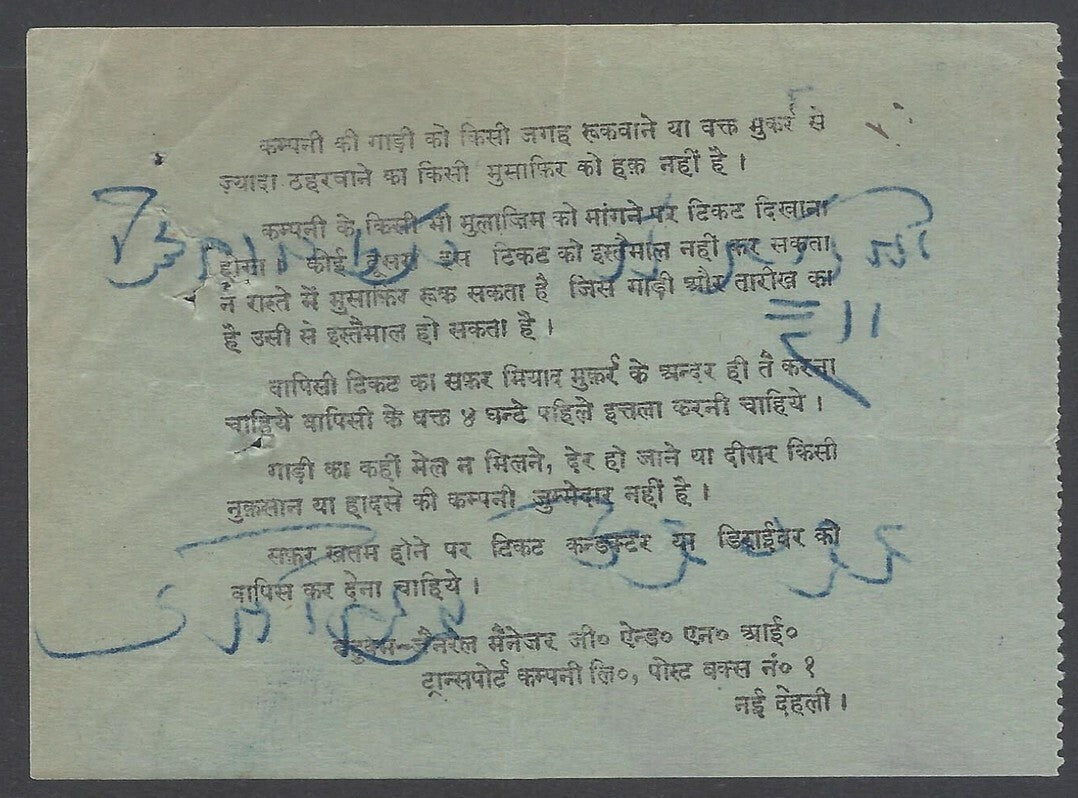 कम्पनी की गाड़ी को किसी जगह रूकवाने या वक्त मुकर्रर से
ज़्यादा ठहरवाने का किसी मुसाफ़िर को हक़ नहीं है ।
कम्पनी के किसी भी मुलाज़िम को मांगने पर टिकट दिखाना
होगा । कोई दूसरा इस टिकट को इस्तैमाल नहीं कर सकता
न रास्ते में मुसाफ़िर रूक सकता है जिस गाड़ी और तारीख का
है उसी से इस्तैमाल हो सकता है ।
वापिसी टिकट का सफ़र मियाद मुक़र्रर के अन्दर ही तै करना
चाहिये वापिसी के वक्त ४ घन्टे पहिले इत्तला करनी चाहिये ।
गाड़ी का कहीं मेल न मिलने, देर हो जाने या दीगर किसी
नुक़सान या हादसे की कम्पनी जुम्मेदार नहीं है ।
सफ़र खतम होने पर टिकट कन्डक्टर या डिराईवर को
वापिस कर देना चाहिये ।
जैनरल मैनेजर जी० ऐन्ड० एन० आई०
ट्रान्सपोर्ट कम्पनी लि०, पोस्ट बक्स नं० १
नई देहली ।